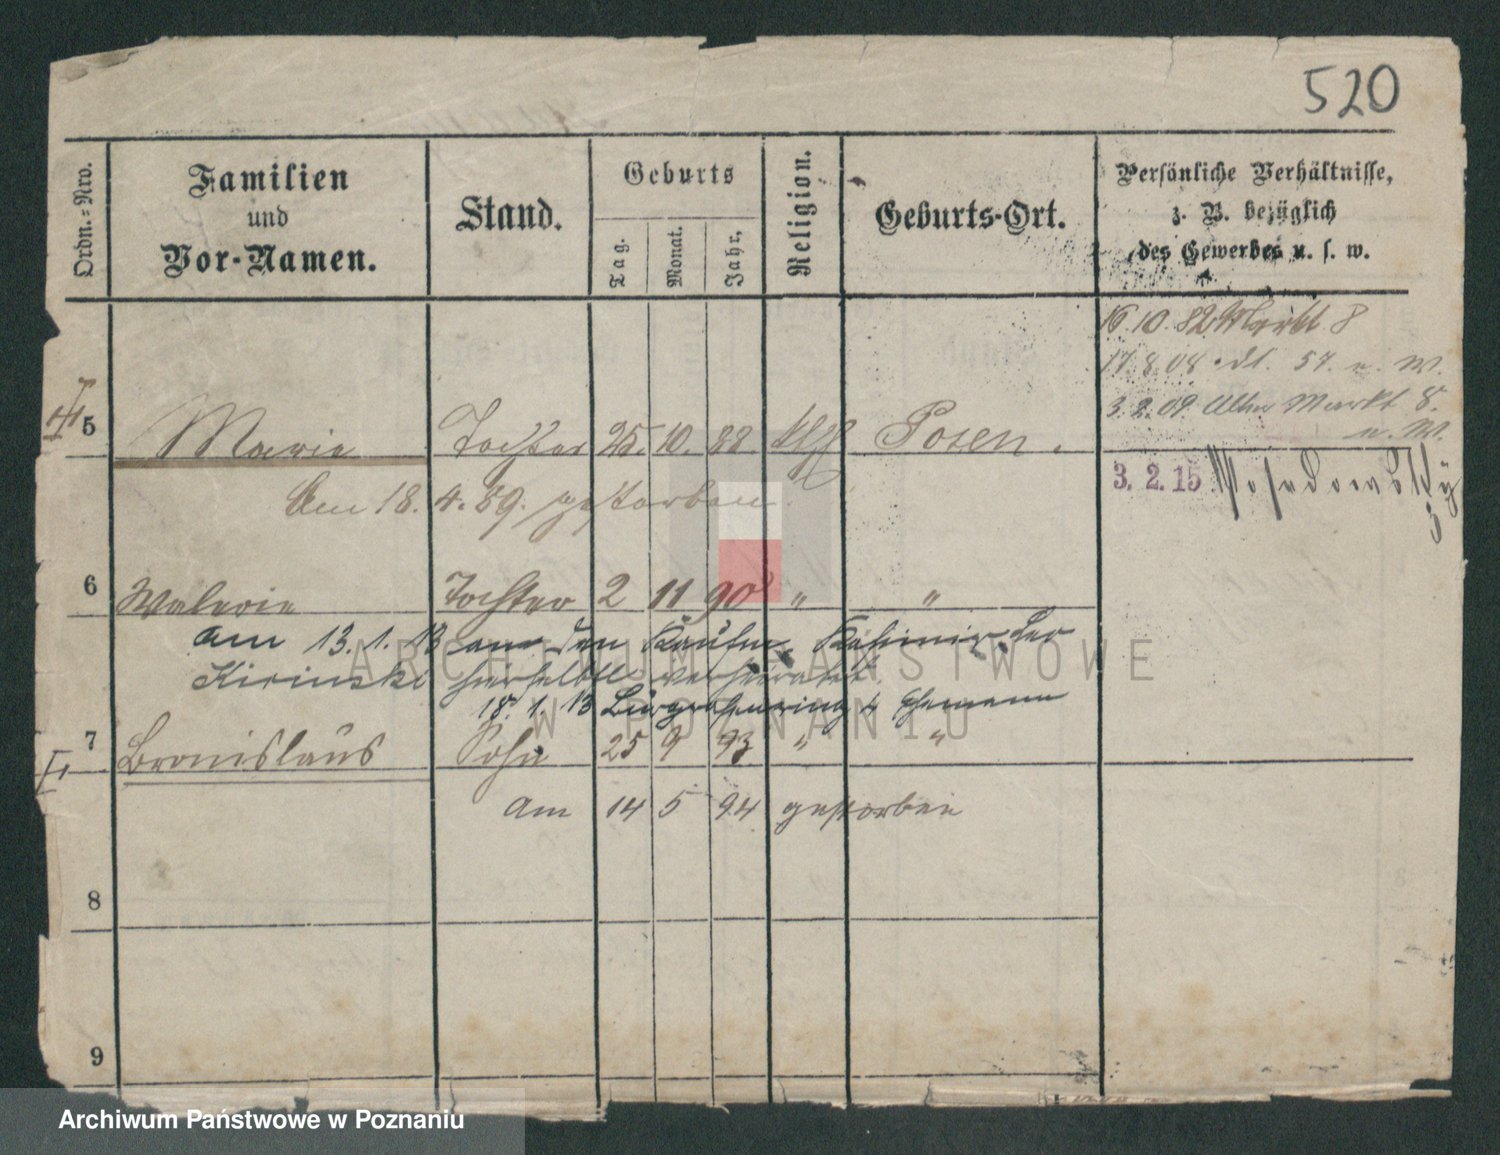 520
Ordn.=Nro.
Familien
und
Vor-Namen.
Stand.
Geburts
Tag.
Monat.
Jahr.
Religion.
Geburts-Ort.
Persönliche Verhältnisse,
z. B. bezüglich
des Gewerbes u. s. w.
16.10.82 Markt 8
17.8.08 57. u. W.
3.2.09 Alter Markt 8.
u. W.
5 Marie Tochter 25. 10. 88. Posen.
3. 2. 15
Am 18. 4. 89. gestorben
6 Walerie Tochter 2 11 90 " "
am 13.1.13 den Kaufm. Kasimir Leo
Kirinski hierselbst verheiratet.
18.1.13 Ehemann
7 Bronislaus Sohn 25 9 93 " "
am 14 5 94 gestorben
8
9
ARCHIWUM PAŃSTWOWE
W POZNANIU
Archiwum Państwowe w Poznaniu